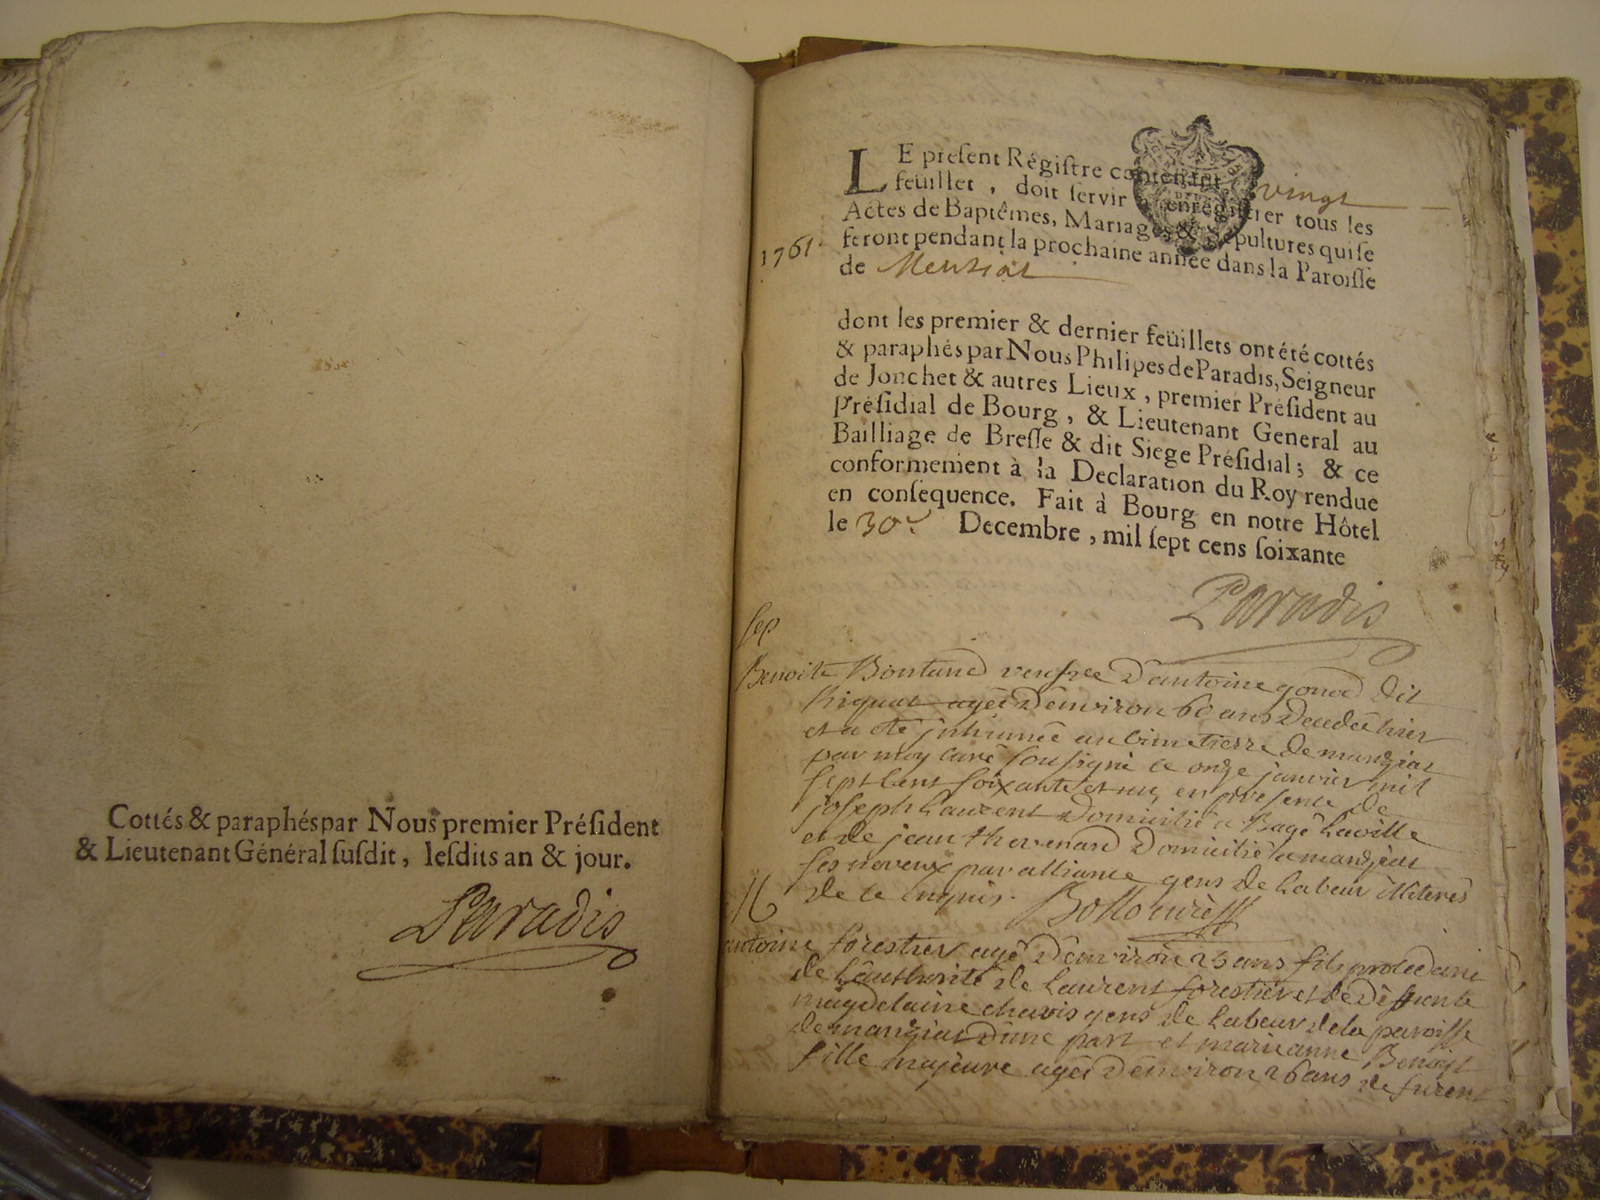 Cottés & paraphés par Nous premier Président
& Lieutenant Général susdit, lesdits an & jour.
Paradis
LE present Régistre contenant vingt
feüillet, doit servir à enregistrer tous les
Actes de Baptêmes, Mariages & Sepultures qui se
1761.
feront pendant la prochaine année dans la Paroisse
de
dont les premier & dernier feüillets ont été cottés
& paraphés par Nous Philipes de Paradis, Seigneur
de Jonchet & autres Lieux, premier Président au
Présidial de Bourg, & Lieutenant General au
Bailliage de Bresse & dit Siege Présidial; & ce
conformement à la Declaration du Roy rendue
en consequence. Fait à Bourg en notre Hôtel
le 30e Decembre, mil sept cens soixante
Paradis
Sep
Benoite veufve d'antoine gonod dit
agée d'environ 60 ans decedée hier
et a été inhumée au cimetierre de manziat
par moy curé soussigné le onze janvier mil
sept cent soixante et un, en presence de
joseph Laurent domicilié a Bagé la ville
et de jean thevenard domicilié a manziat
ses neveux par alliance gens de labeur illiterés
de ce enquis.
antoine forestier agé d'environ 25 ans fils
de l'authorité de Laurent forestier et de deffunte
magdelaine gens de labeur de la paroisse
de manziat d'une part et marianne Benoist
fille majeure agée d'environ 26 ans de